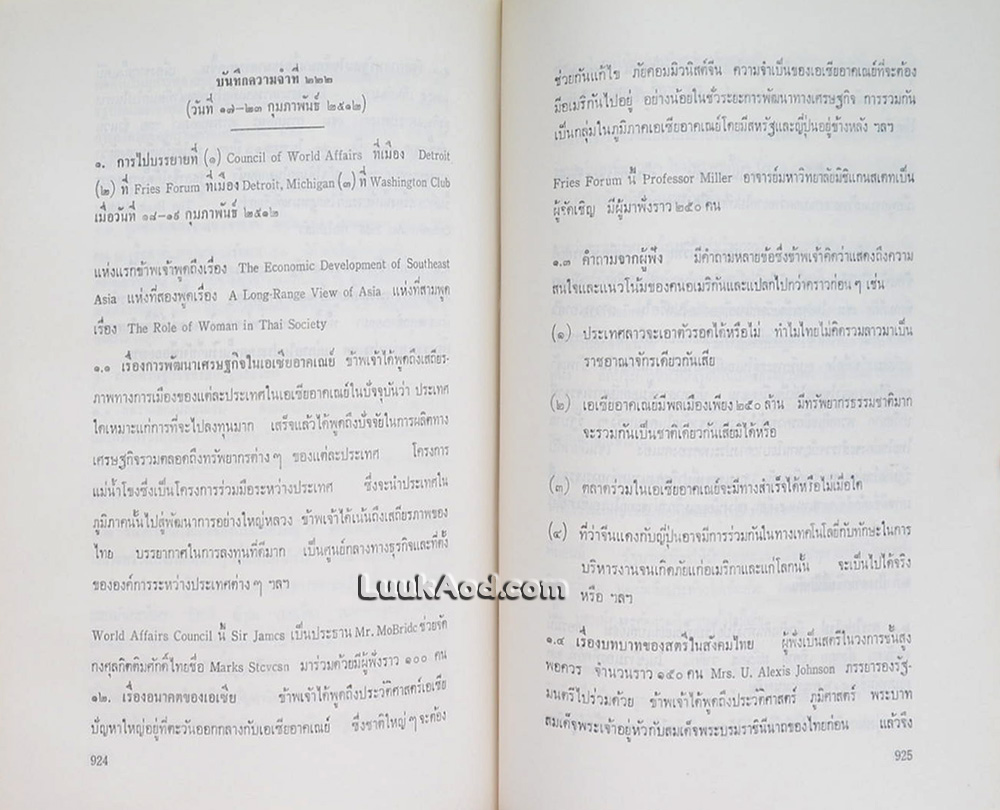 บันทึกความจำที่ ๒๒๒
(วันที่ ๑๗-๒๓ กุมภาพันธ์ ๒๕๑๒)
๑. การไปบรรยายที่ (๑) Council of World Affairs ที่เมือง Detroit
(๒) ที่ Fries Forum ที่เมือง Detroit, Michigan (๓) ที่ Washington Club
เมื่อวันที่ ๑๘-๑๙ กุมภาพันธ์ ๒๕๑๒
แห่งแรกข้าพเจ้าพูดถึงเรื่อง The Economic Development of Southeast
Asia แห่งที่สองพูดเรื่อง A Long-Range View of Asia แห่งที่สามพูด
เรื่อง The Role of Woman in Thai Society
๑.๑ เรื่องการพัฒนาเศรษฐกิจในเอเซียอาคเณย์ ข้าพเจ้าได้พูดถึงเสถียร-
ภาพทางการเมืองของแต่ละประเทศในเอเซียอาคเณย์ในปัจจุบันว่า ประเทศ
ใดเหมาะแก่การที่จะไปลงทุนมาก เสร็จแล้วได้พูดถึงปัจจัยในการผลิตทาง
เศรษฐกิจรวมตลอดถึงทรัพยากรต่าง ๆ ของแต่ละประเทศ โครงการ
แม่น้ำโขงซึ่งเป็นโครงการร่วมมือระหว่างประเทศ ซึ่งจะนำประเทศใน
ภูมิภาคนั้นไปสู่พัฒนาการอย่างใหญ่หลวง ข้าพเจ้าได้เน้นถึงเสถียรภาพของ
ไทย บรรยากาศในการลงทุนที่ดีมาก เป็นศูนย์กลางทางธุรกิจและที่ตั้ง
ขององค์การระหว่างประเทศต่าง ๆ ฯลฯ
World Affairs Council นี้ Sir James เป็นประธาน Mr. MoBride ช่วยจัด
กงศุลกิตติมศักดิ์ไทยชื่อ Marks Steven มาร่วมด้วยมีผู้ฟังราว ๑๐๐ คน
๑๒. เรื่องอนาคตของเอเซีย ข้าพเจ้าได้พูดถึงประวัติศาสตร์เอเซีย
ปัญหาใหญ่อยู่ที่ตะวันออกกลางกับเอเซียอาคเณย์ ซึ่งชาติใหญ่ ๆ จะต้อง
924
ช่วยกันแก้ไข ภัยคอมมิวนิสต์จีน ความจำเป็นของเอเซียอาคเณย์ที่จะต้อง
มีอเมริกันไปอยู่ อย่างน้อยในชั่วระยะการพัฒนาทางเศรษฐกิจ การรวมกัน
เป็นกลุ่มในภูมิภาคเอเซียอาคเณย์โดยมีสหรัฐและญี่ปุ่นอยู่ข้างหลัง ฯลฯ
Fries Forum นี้ Professor Miller อาจารย์มหาวิทยาลัยมิชิแกนสเตทเป็น
ผู้จัดเชิญ มีผู้มาฟังราว ๒๕๐ คน
๑.๓ คำถามจากผู้ฟัง มีคำถามหลายข้อซึ่งข้าพเจ้าคิดว่าแสดงถึงความ
สนใจและแนวโน้มของคนอเมริกันและแปลกไปกว่าคราวก่อน ๆ เช่น
(๑) ประเทศลาวจะเอาตัวรอดได้หรือไม่ ทำไมไทยไม่คิดรวมลาวมาเป็น
ราชอาณาจักรเดียวกันเสีย
(๒) เอเซียอาคเณย์มีพลเมืองเพียง ๒๕๐ ล้าน มีทรัพยากรธรรมชาติมาก
จะรวมกันเป็นชาติเดียวกันเสียมิได้หรือ
(๓) ตลาดร่วมในเอเซียอาคเณย์จะมีทางสำเร็จได้หรือไม่เมื่อใด
(๔) ที่ว่าจีนแดงกับญี่ปุ่นอาจมีการร่วมกันในทางเทคโนโลยี่กับทักษะในการ
บริหารงานจนเกิดภัยแก่อเมริกาและแก่โลกนั้น จะเป็นไปได้จริง
หรือ ฯลฯ
LuukAod.com
๑.๔ เรื่องบทบาทของสตรีในสังคมไทย ผู้ฟังเป็นสตรีในวงการชั้นสูง
พอควร จำนวนราว ๑๕๐ คน Mrs. U. Alexis Johnson ภรรยารองรัฐ-
มนตรีไปร่วมด้วย ข้าพเจ้าได้พูดถึงประวัติศาสตร์ ภูมิศาสตร์ พระบาท
สมเด็จพระเจ้าอยู่หัวกับสมเด็จพระบรมราชินีนาถของไทยก่อน แล้วจึง
925